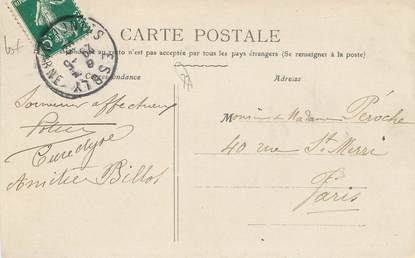 CARTE POSTALE
au recto n'est pas acceptée par tous les pays étrangers (Se renseigner à la poste)
Correspondance
Adresse
ESBLY
Souvenir affectueux
Amitiés Billot
Monsieur et Madame Péroche
40 rue St Merri
Paris